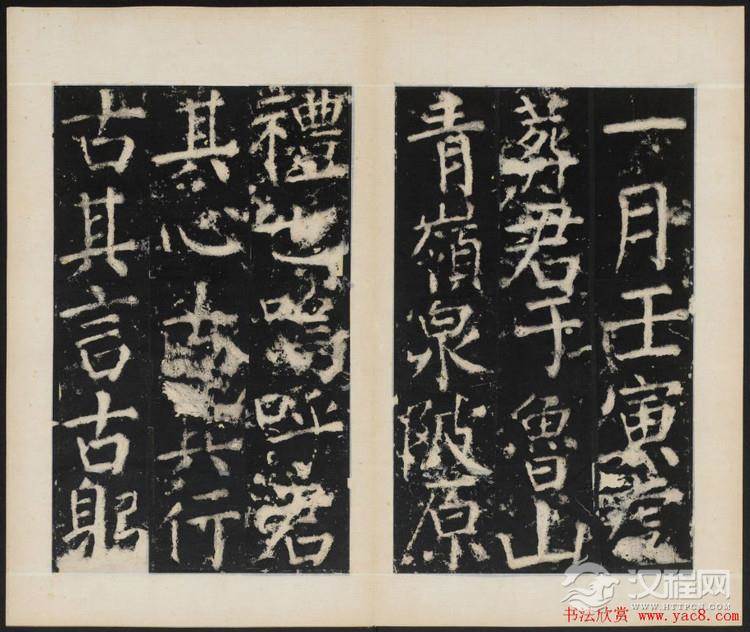 一月壬寅虔
葬君于魯山
青嶺泉陂原
禮也嗚呼君
其心古其行
古其言古躳
汉程网
HTTPCN.COM
书法欣赏 www.yac8.com